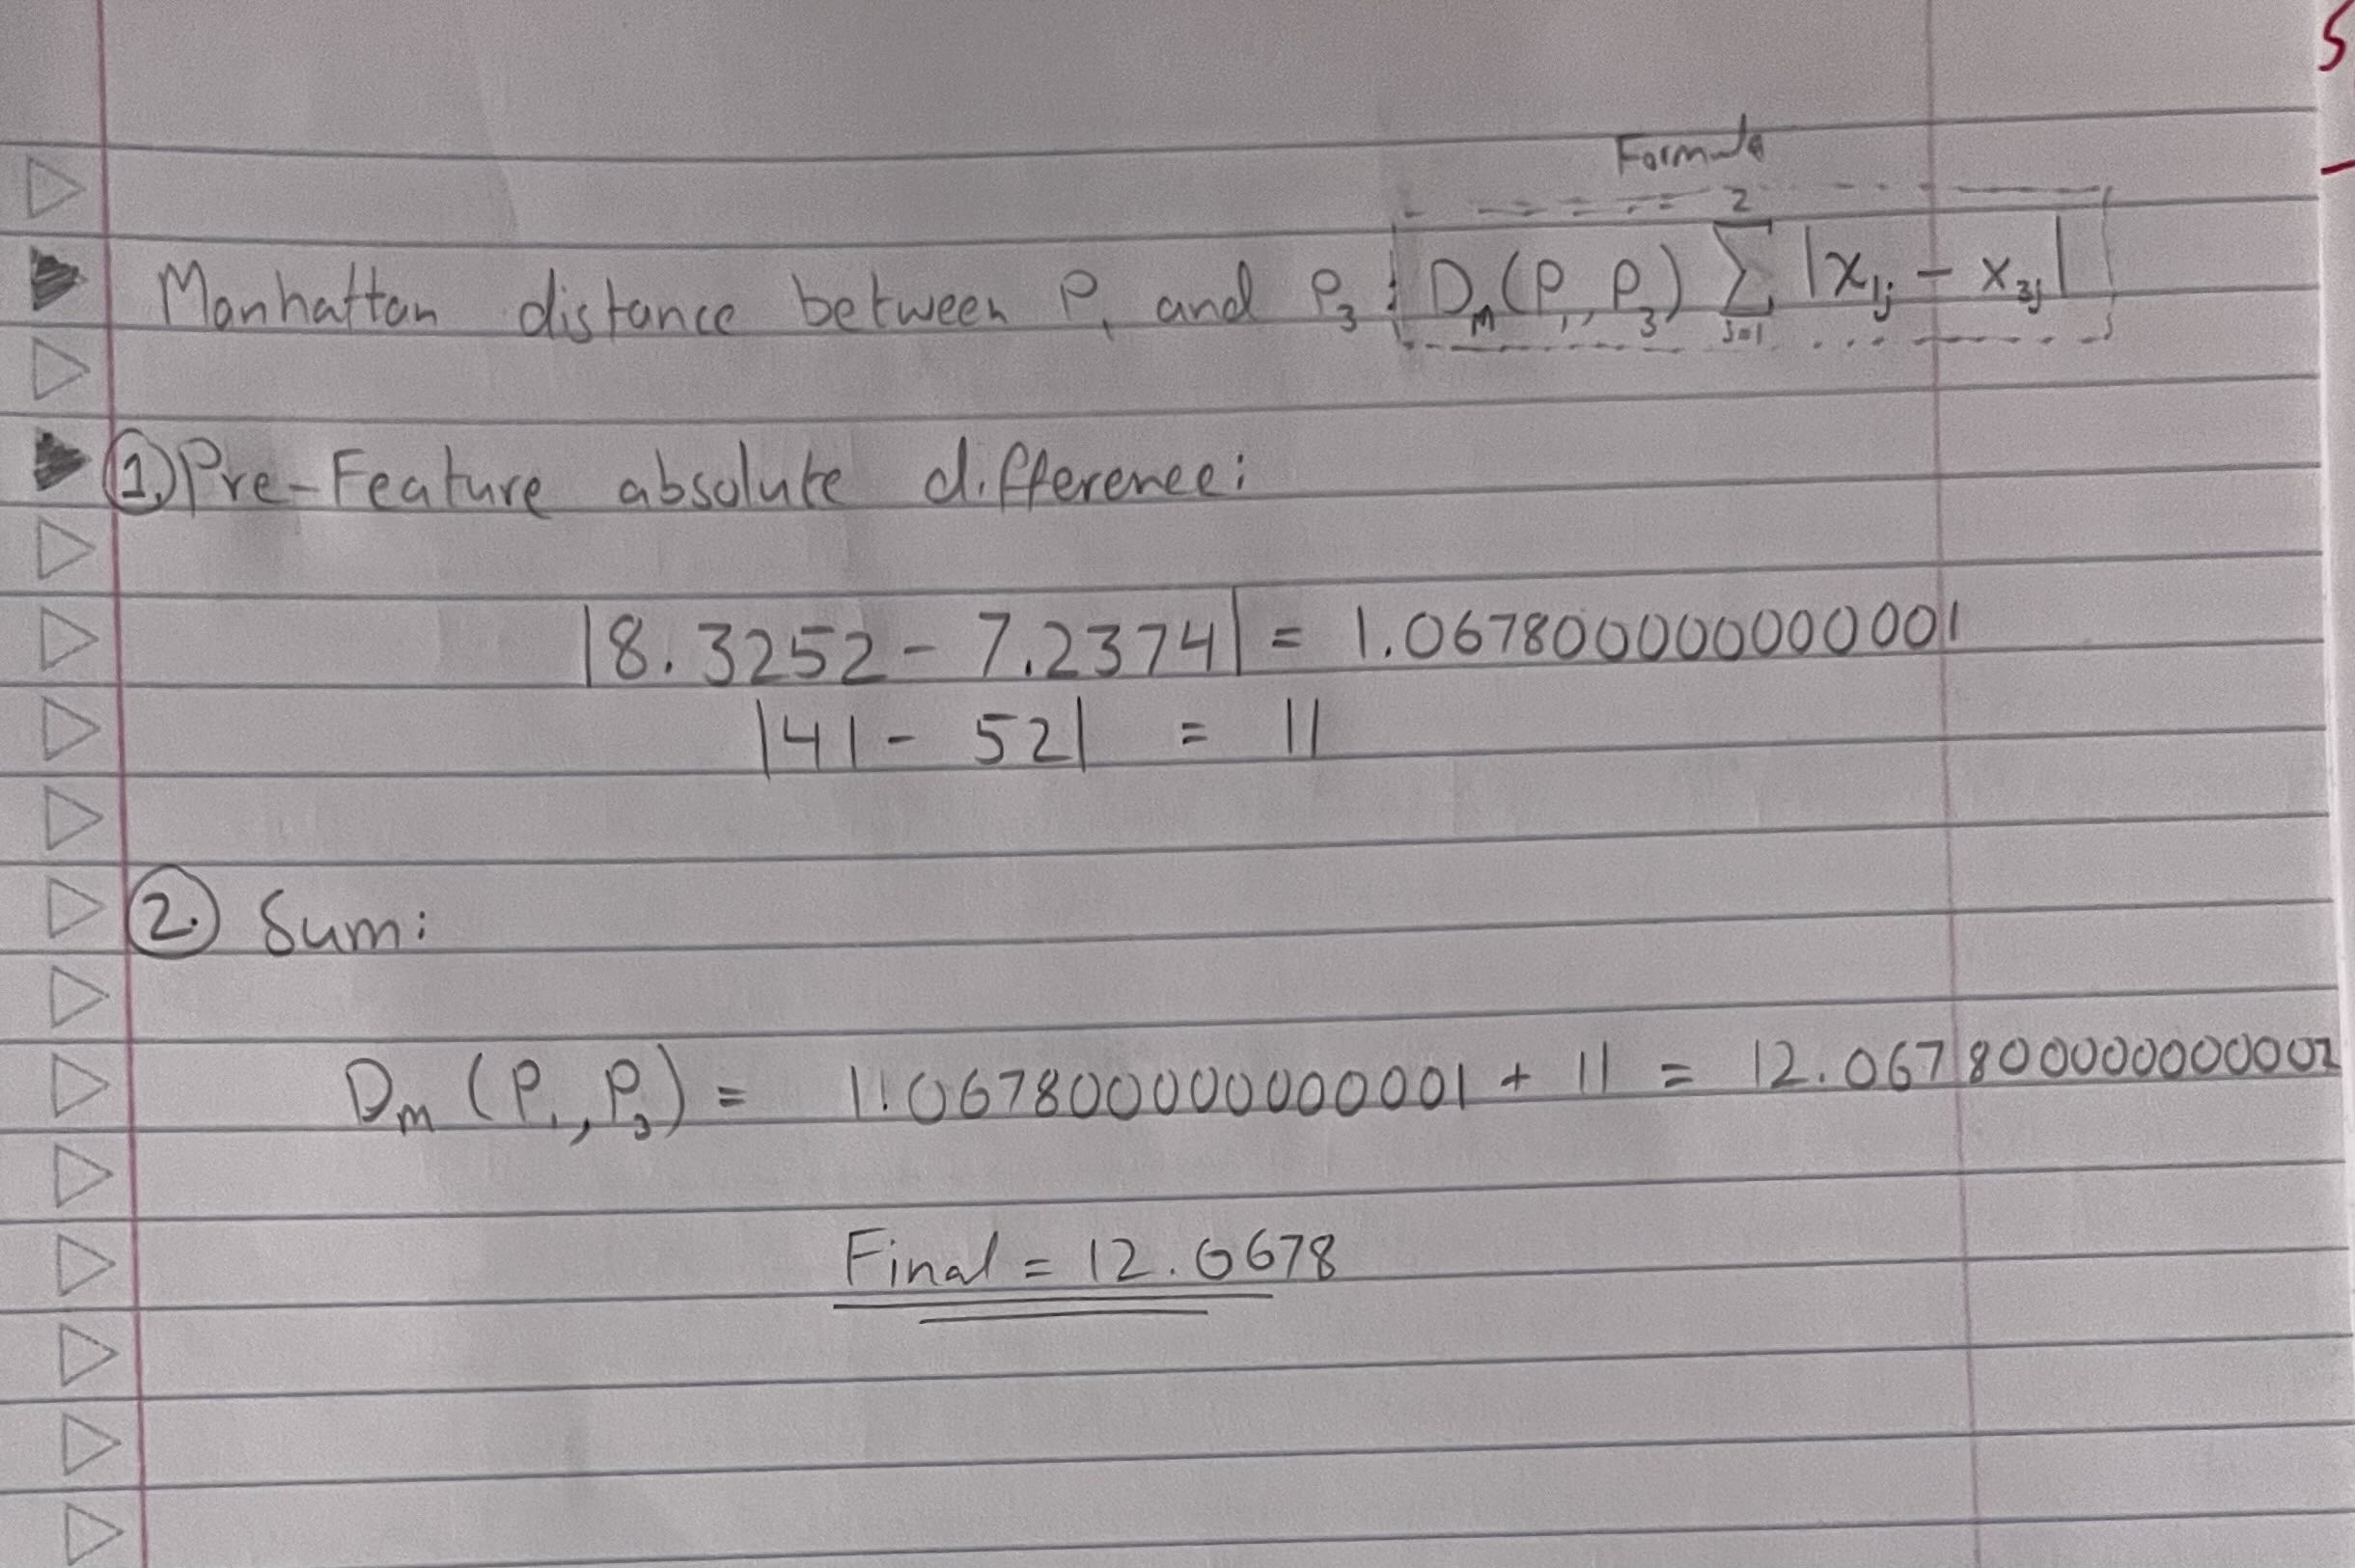 Formula
Manhattan distance between P₁ and P₃ : Dₘ(P₁, P₃) ∑²ⱼ₌₁ |x₁ⱼ - x₃ⱼ|
1. Pre-Feature absolute difference:
|8.3252 - 7.2374| = 1.06780000000000001
|41 - 52| = 11
2. Sum:
Dₘ (P₁, P₃) = 1.067800000000001 + 11 = 12.067800000000002
Final = 12.0678